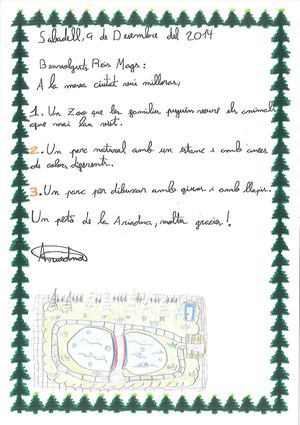 Sabadell, 9 de Desembre del 2014
Benvolguts Reis Mags:
A la meva ciutat vui millorar;
1. Un Zoo que les families puguin veure els animals
que mai han vist.
2. Un parc natural amb un estanc i amb ànecs
de colors diferents.
3. Un parc per dibuixar amb guixos i amb llapis.
Un petó de la Ariadna, moltes gracies!
Ariadna